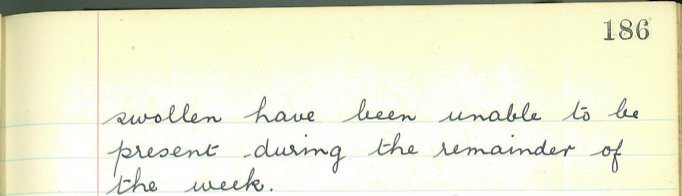 186
swollen have been unable to be
present during the remainder of
the week.